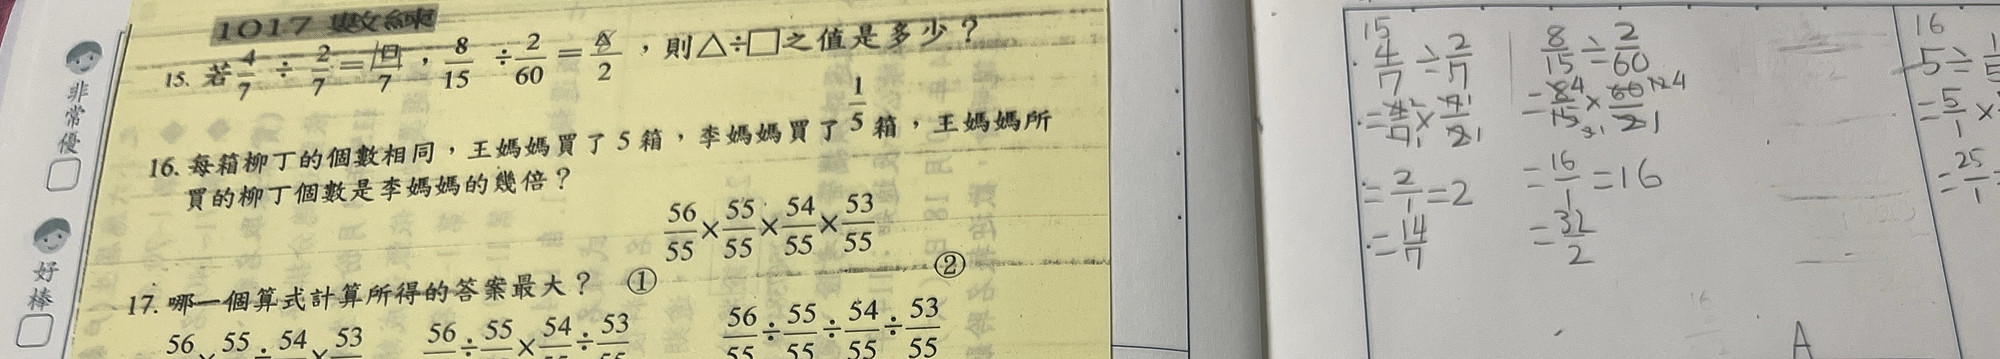 1017 數練
15. 若 4/7 ÷ 2/7 = □/7 , 8/15 ÷ 2/60 = △/2 , 則△÷□之值是多少?
16. 每箱柳丁的個數相同,王媽媽買了 5 箱,李媽媽買了 1/5 箱,王媽媽所
買的柳丁個數是李媽媽的幾倍?
17. 哪一個算式計算所得的答案最大? ① 56/55 × 55/55 × 54/55 × 53/55 ②
56 × 55 ÷ 54 × 53
56 ÷ 55 × 54 ÷ 53
56/55 ÷ 55/55 ÷ 54/55 ÷ 53/55
非常優
好棒
15
4/7 ÷ 2/7
= 4/7 × 7/2
= 2/1 = 2
= 14/7
8/15 ÷ 2/60
= 8/15 × 60/2
= 16/1 = 16
= 32/2
16
5 ÷ 1/5
= 5/1 ×
= 25/1 =
A